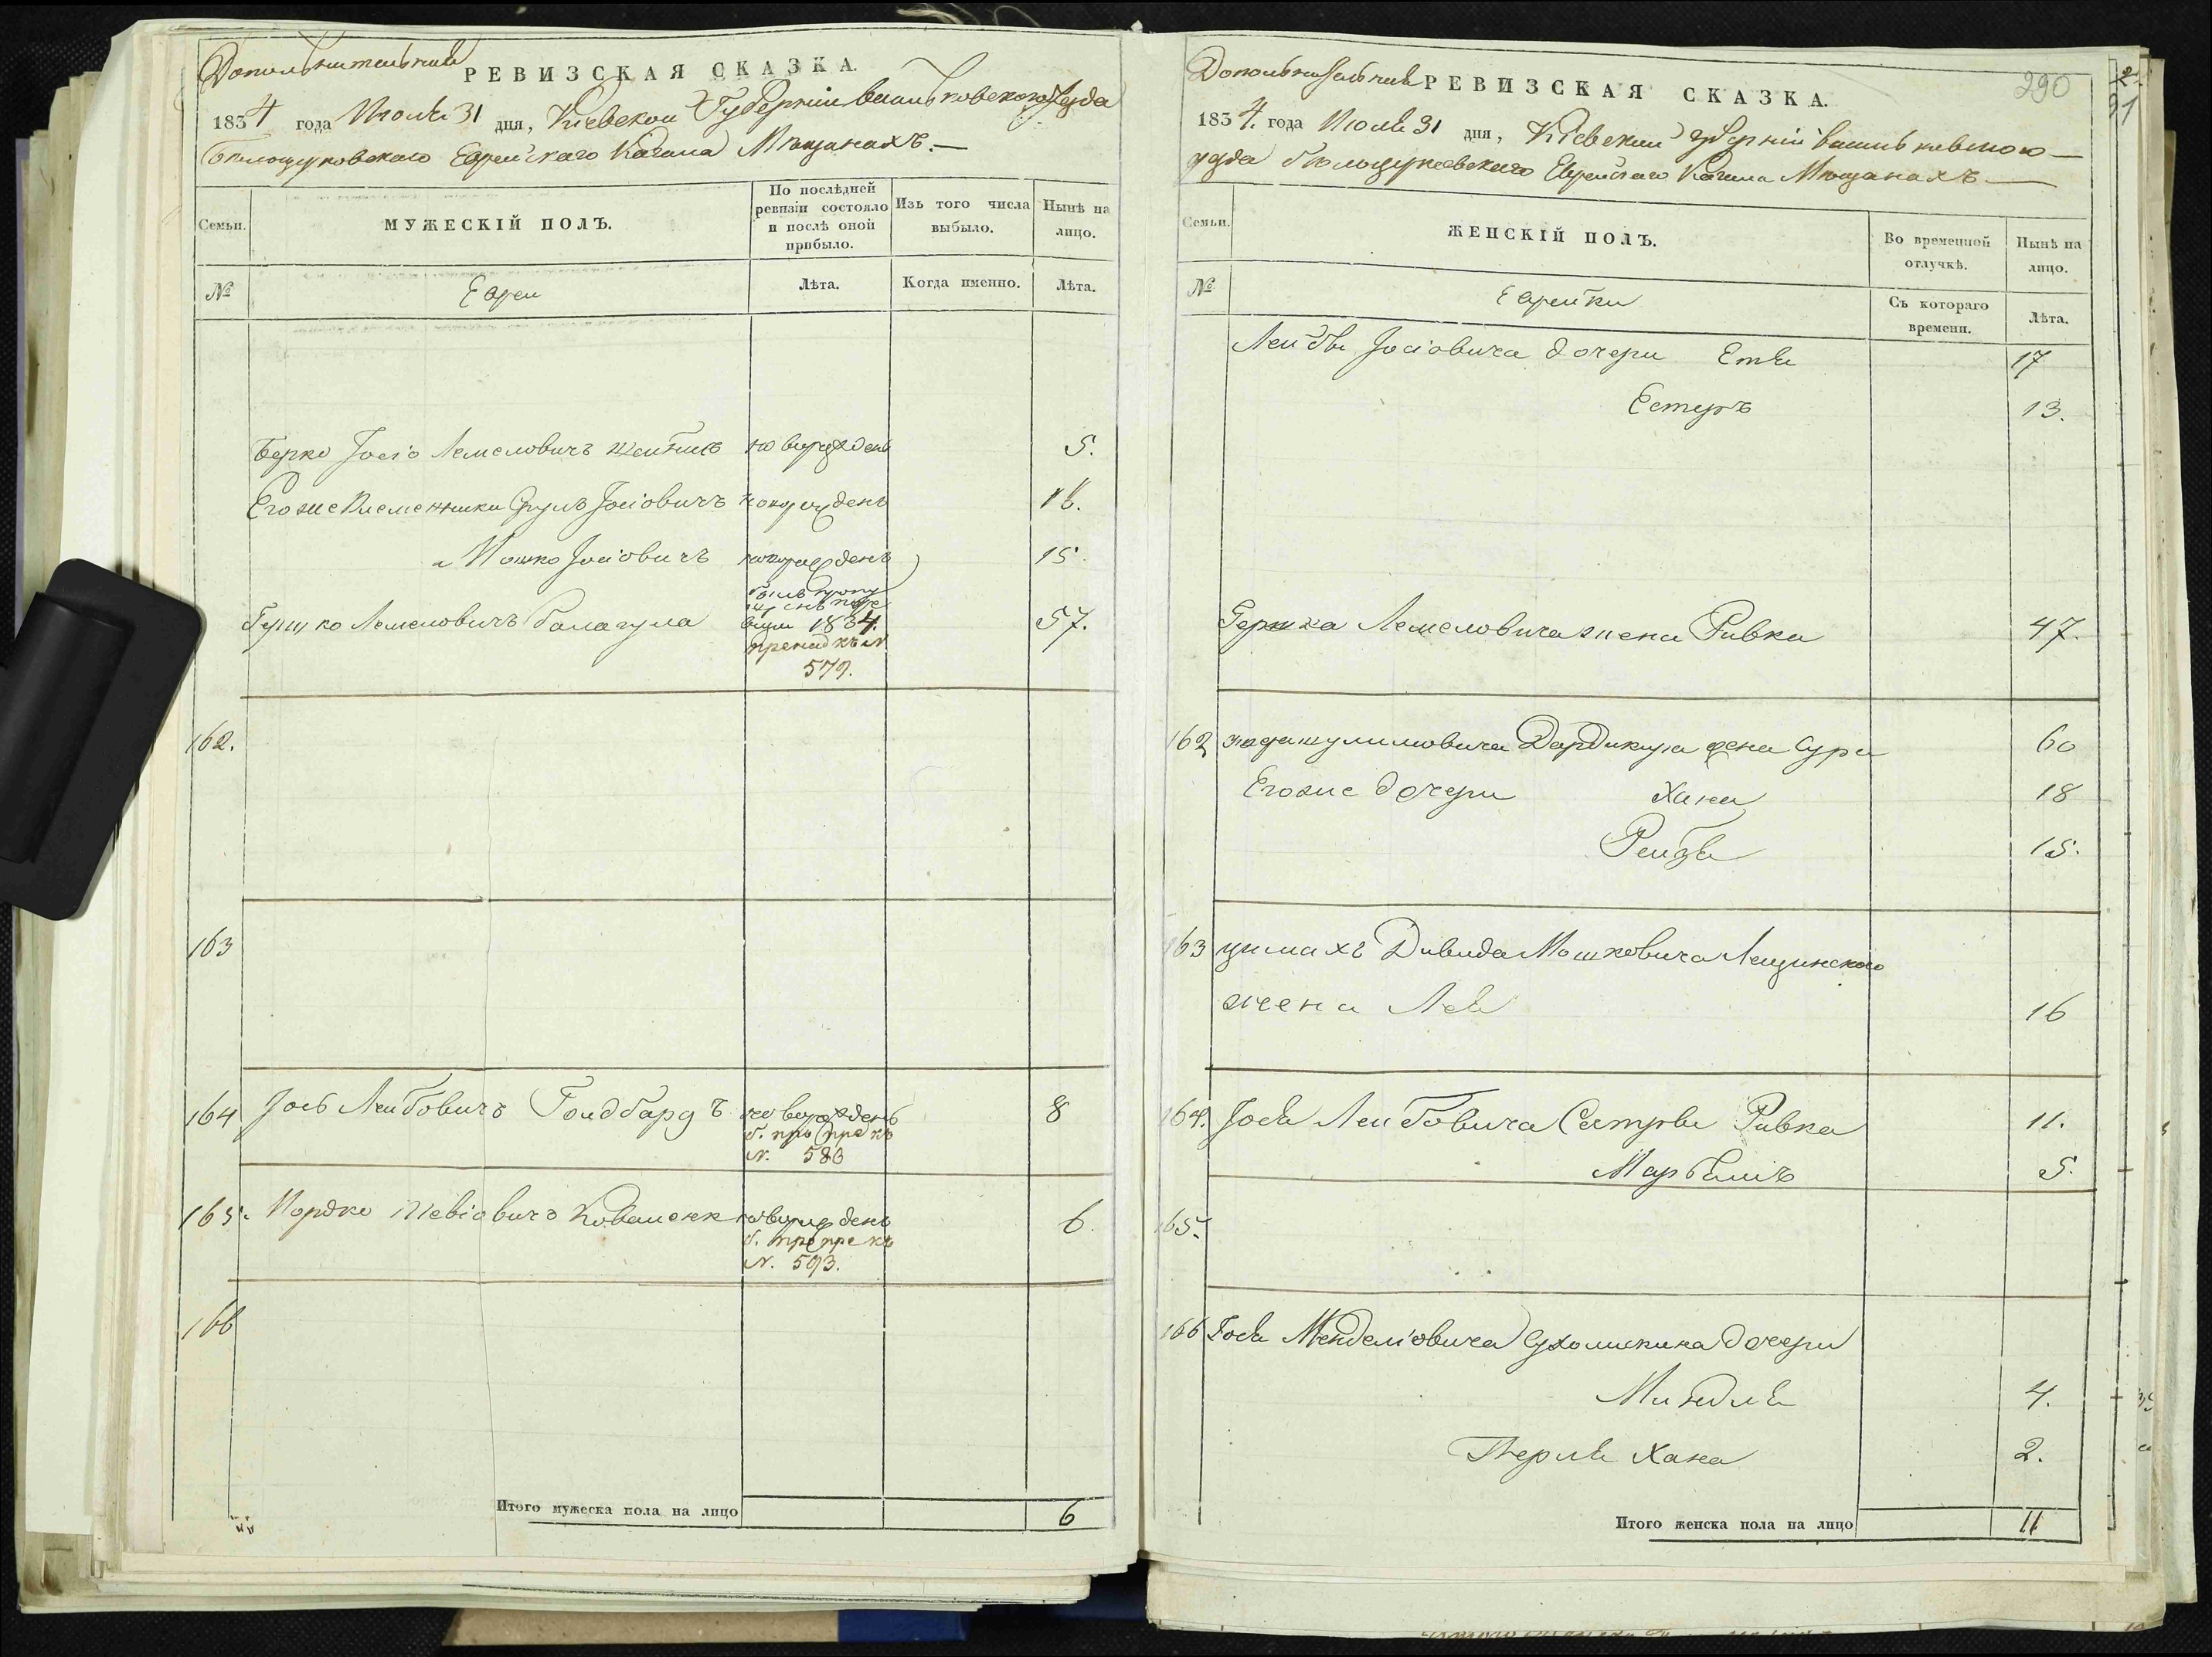 Дополнительная РЕВИЗСКАЯ СКАЗКА.
1834 года Июля 31 дня, Кіевской Губерніи Васильковского уезда
Белоцерковского Еврейскаго Кагала Мещанахъ.—
Семьи.
МУЖЕСКІЙ ПОЛЪ.
По послѣдней ревизіи состояло и послѣ оной прибыло.
Изъ того числа выбыло.
Нынѣ на лицо.
№
Евреи
Лѣта.
Когда именно.
Лѣта.
Берко Іосіо Лемеловичъ новорожденъ 5.
Егоже Племенники Сруль Іосіовичъ новорожденъ 16.
и Мошко Іосіовичъ новорожденъ 15
Гершко Лемеловичъ Балагула 57.
1834.
579.
162.
163
164 Іось Лейбовичъ Голдбардъ новорожденъ 8
N. 586
165. Мордко новорожденъ 6.
N. 593.
166
Итого мужеска пола на лицо 6
290
Дополнительная РЕВИЗСКАЯ СКАЗКА.
1834. года Июля 31 дня, Кіевской губерніи Васильковского
уезда Белоцерковскаго Еврейскаго Кагала Мещанахъ.—
Семьи.
ЖЕНСКІЙ ПОЛЪ.
Во временной отлучкѣ.
Нынѣ на лицо.
№
Еврейки
Съ котораго времени.
Лѣта.
Лейбы Іосіовича дочери Етя 17
Естеръ 13.
Гершка Лемеловича жена Ривка 47.
162 Дардикура жена Сура 60
Егоже дочери Хана 18
Рейзя 15.
163 Цимахъ Давида Мошковича Лещинского
жена Лея 16
164. Іося Лейбовича Сестры Ривка 11.
Марьямъ 5.
165.
166 Іося Менделіовича Сухолиткина дочери
Миндля 4.
Перля Хана 2.
Итого женска пола на лицо 11